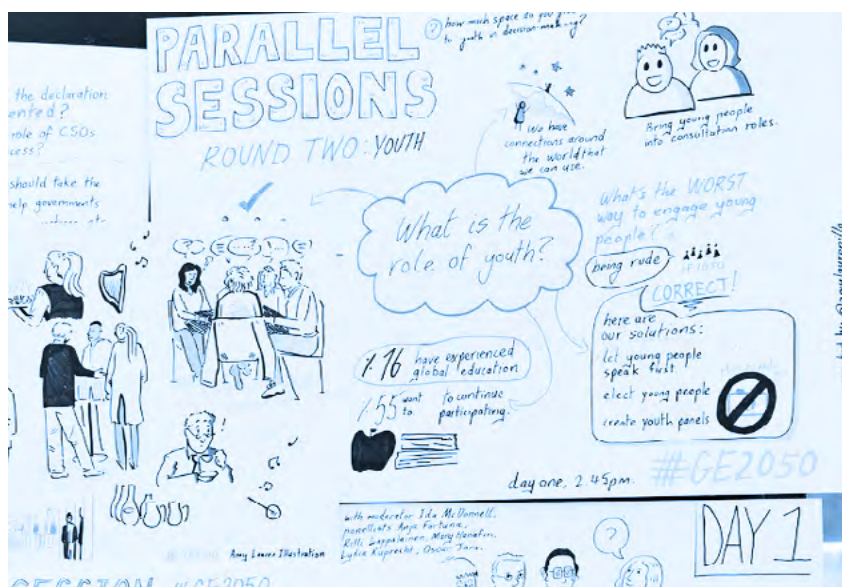 the declaration
ented?
role of CSOs
cess?
should take the
help governments
PARALLEL
SESSIONS
ROUND TWO: YOUTH
? how much space do you give
to youth in decision-making?
We have
connections around
the world that
we can use.
Bring young people
into consultation roles.
What is the
role of youth?
What's the WORST
way to engage young
people?
being rude
CORRECT!
here are
our solutions:
let young people
speak first
elect young people
create youth panels
% 76 have experienced
global education
% 55 want to continue
to participating.
day one, 2.45pm. #GE2050
Amy Leaver Illustration
with moderator Ida McDonnell,
panellists Anja Fortuna,
Rilli Lappalainen, Mary Hanafin,
Lydia Ruprecht, Oscar Jara.
?
DAY 1
SESSION #GE2050